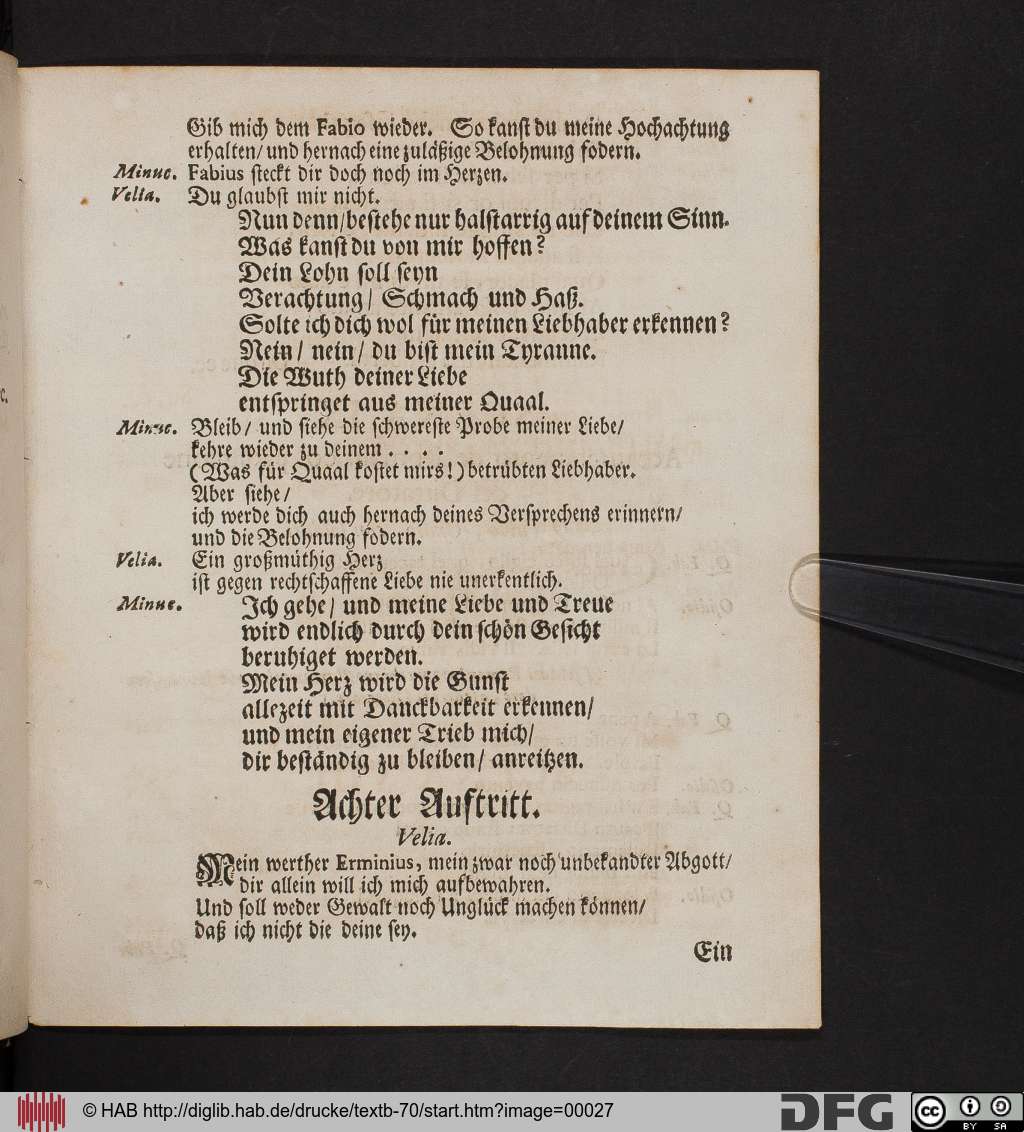 Gib mich dem Fabio wieder. So kanst du meine Hochachtung
erhalten/ und hernach eine zuläßige Belohnung fodern.
Minuc. Fabius steckt dir doch noch im Herzen.
Velia. Du glaubst mir nicht.
Nun denn/ bestehe nur halstarrig auf deinem Sinn.
Was kanst du von mir hoffen?
Dein Lohn soll seyn
Verachtung/ Schmach und Haß.
Solte ich dich wol für meinen Liebhaber erkennen?
Nein/ nein/ du bist mein Tyranne.
Die Wuth deiner Liebe
entspringet aus meiner Quaal.
Minuc. Bleib/ und siehe die schwereste Probe meiner Liebe/
kehre wieder zu deinem . . . .
(Was für Quaal kostet mirs!) betrübten Liebhaber.
Aber siehe/
ich werde dich auch hernach deines Versprechens erinnern/
und die Belohnung fodern.
Velia. Ein großmüthig Herz
ist gegen rechtschaffene Liebe nie unerkentlich.
Minuc. Ich gehe/ und meine Liebe und Treue
wird endlich durch dein schön Gesicht
beruhiget werden.
Mein Herz wird die Gunst
allezeit mit Danckbarkeit erkennen/
und mein eigener Trieb mich/
dir beständig zu bleiben/ anreitzen.
Achter Auftritt.
Velia.
Mein werther Erminius, mein zwar noch unbekandter Abgott/
dir allein will ich mich aufbewahren.
Und soll weder Gewalt noch Unglück machen können/
daß ich nicht die deine sey.
Ein
© HAB http://diglib.hab.de/drucke/textb-70/start.htm?image=00027
DFG
cc BY SA